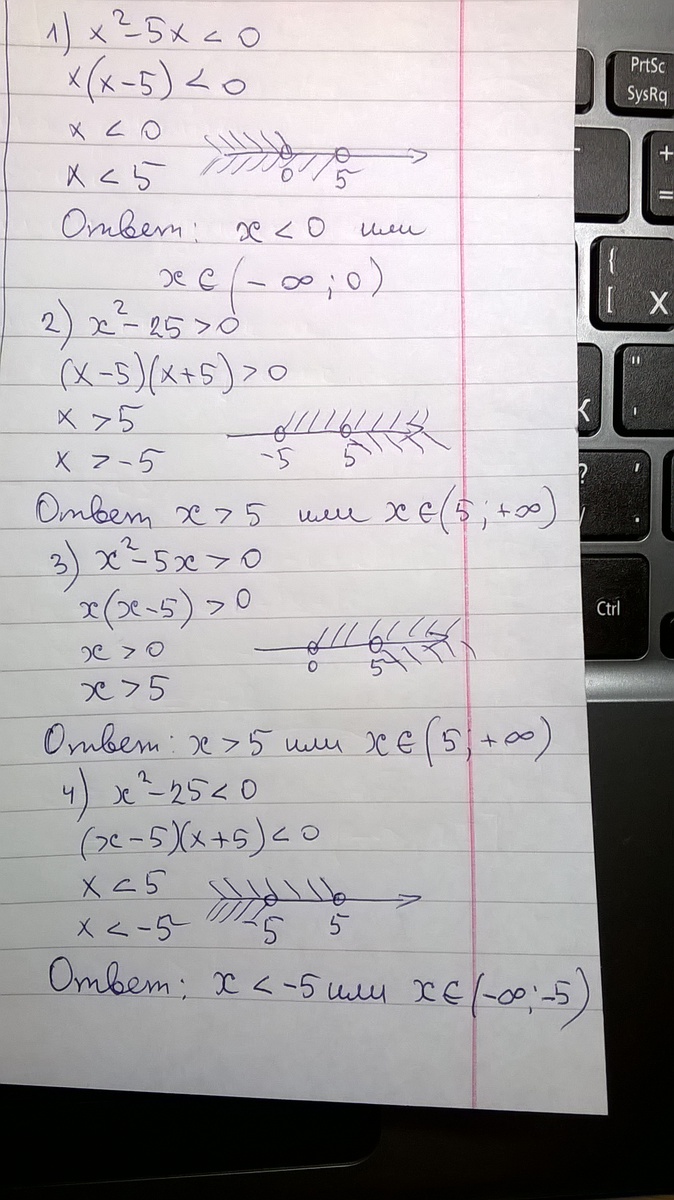 1) x²-5x < 0
x(x-5) < 0
x < 0
x < 5
0 5
Ответ: x < 0 или
x ∈ (-∞; 0)
2) x²-25 > 0
(x-5)(x+5) > 0
x > 5
x > -5
-5 5
Ответ x > 5 или x ∈ (5; +∞)
3) x²-5x > 0
x(x-5) > 0
x > 0
x > 5
0 5
Ответ: x > 5 или x ∈ (5; +∞)
4) x²-25 < 0
(x-5)(x+5) < 0
x < 5
x < -5
-5 5
Ответ: x < -5 или x ∈ (-∞; -5)
PrtSc
SysRq
+
=
{
[
X
"
'
?
/
.
Ctrl